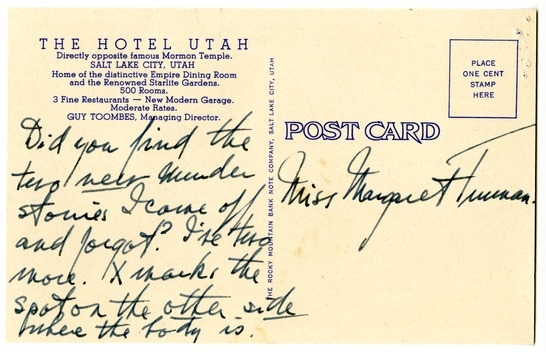 THE HOTEL UTAH
Directly opposite famous Mormon Temple.
SALT LAKE CITY, UTAH
Home of the distinctive Empire Dining Room
and the Renowned Starlite Gardens.
500 Rooms.
3 Fine Restaurants — New Modern Garage.
Moderate Rates.
GUY TOOMBES, Managing Director.
Did you find the
two new murder
stories I came off
and forgot? I've two
more. X marks the
spot on the other side
where the body is.
THE ROCKY MOUNTAIN BANK NOTE COMPANY, SALT LAKE CITY, UTAH
PLACE
ONE CENT
STAMP
HERE
POST CARD
Miss Margaret Truman.